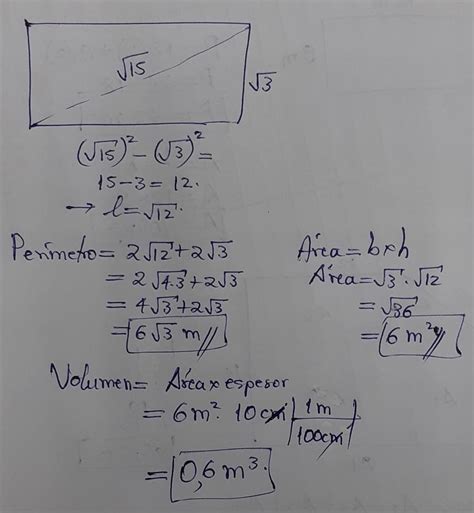 √15
√3
(√15)² - (√3)² =
15 - 3 = 12.
→ l = √12.
Perímetro = 2√12 + 2√3
= 2√4.3 + 2√3
= 4√3 + 2√3
= 6√3 m//
Área = b x h
Área = √3 . √12
= √36
= 6 m²//
Volumen = Área x espesor
= 6m². 10 cm | 1m
100cm |
= 0,6 m³.